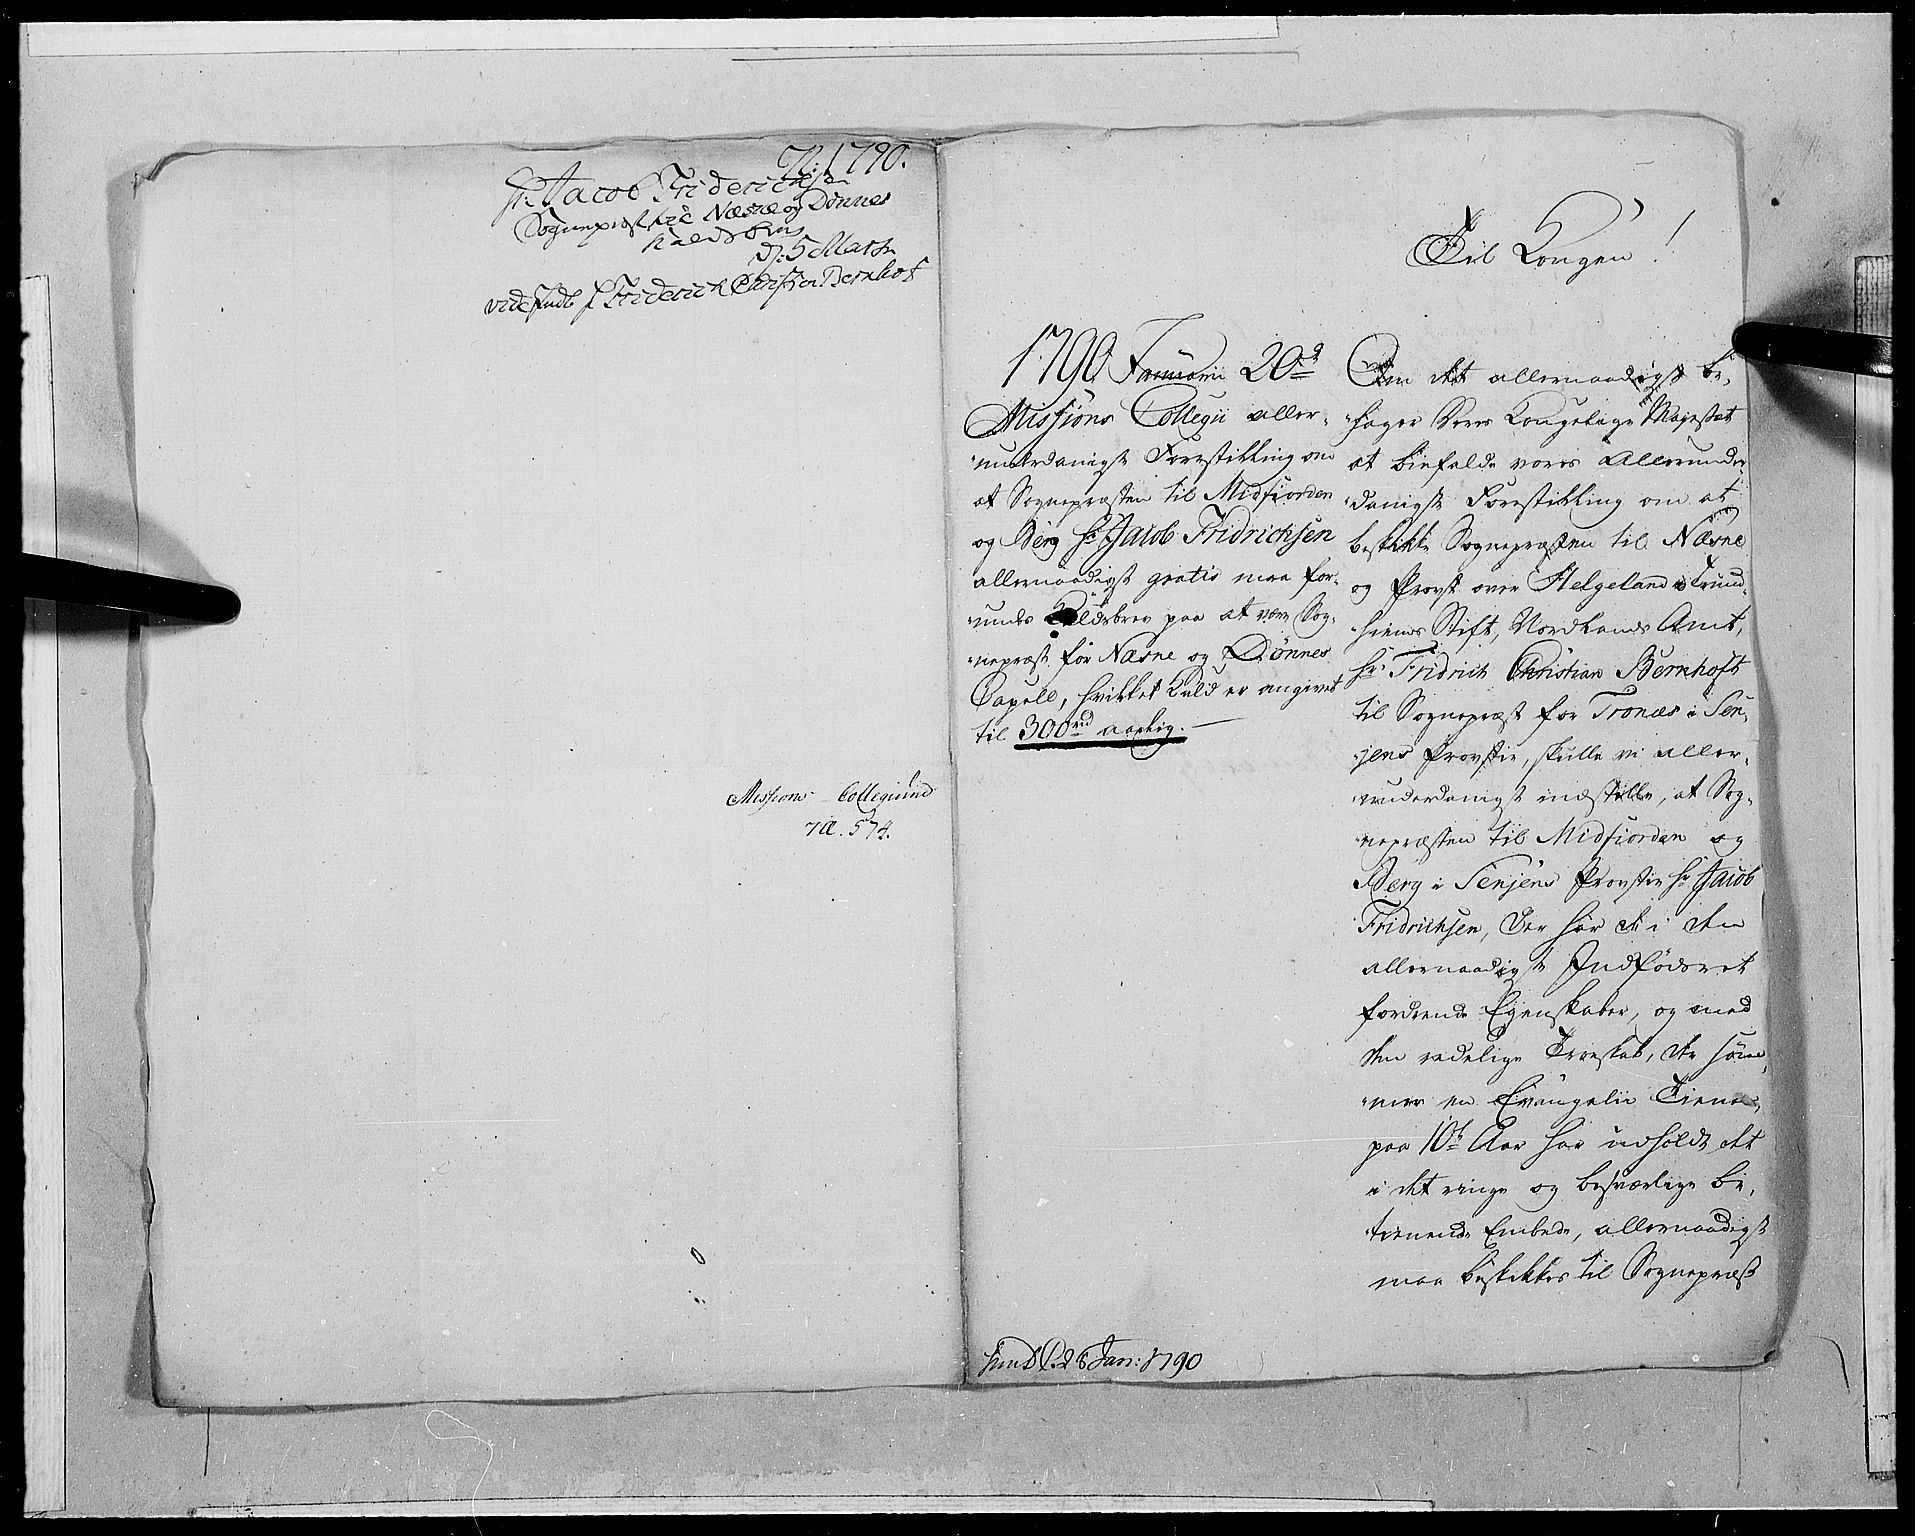 N: 1790.
Hr. Jacob Friderichsen
Sognepræst til Næsne og Dønnes
Kalds Brev
D: 5 Marti
vide Indl f Friderich Christian Bernhoft
Missions Collegium
No. 574.
Til Kongen!
1790 Januarii 20de
Missions Collegii aller-
underdanigst Forestilling om
at Sognepræsten til Midfiorden
og Berg Hr Jacob Fridrichsen
allernaadigst gratis maa for-
undes Kaldsbrev paa at være Sog-
nepræst for Næsne og Dønnes
Capell, hvilket Kald er angivet
til 300rd aarlig.
Om det allernaadigst be-
hager Deres Kongelige Majestæt
at biefalde vores Allerunder-
danigste Forestilling om at
beskikke Sognepræsten til Næsne
og Provst over Helgeland i Trund-
hiems Stift, Nordlands Amt,
Hr Fridrich Christian Bernhoft
til Sognepræst for Tronæs i Sen-
jens Provstie, skulle vi aller-
underdanigst indstille, at Sog-
nepræsten til Midfiorden og
Berg i Senjens Provstie Hr Jacob
Fridrichsen, der har de i den
allernaadigste Indfødsret
fordrende Egenskaber, og med
den redelige Troeskab, der søm-
mer en Evangelii Tiener,
paa 10de Aar har udholdt det
i det ringe og besværlige be-
tienende Embede, allernaadigst
maa beskikkes til Sognepræst
Hund P. d 26 Jan: 1790